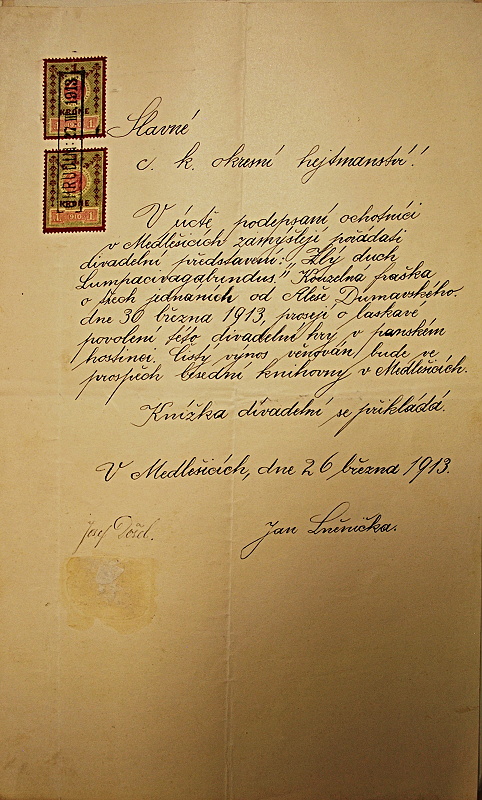 KRONE
1 1
CHRUDIM 1913
KRONE
1 1910 1
Slavné
c. k. okresní hejtmanství!
V úctě podepsaní ochotníci
v Medlešicích zamýšlejí pořádati
divadelní představení: „Zlý duch
Lumpacivagabundus." Kouzelná fraška
o třech jednáních od Aleše Dumavského.
dne 30 března 1913, prosejí o laskavé
povolení této divadelní hry v panském
hostinci. Čistý výnos věnován bude ve
prospěch besední knihovny v Medlešicích.
Knížka divadelní se přikládá.
V Medlešicích, dne 26 března 1913.
Josef Jan